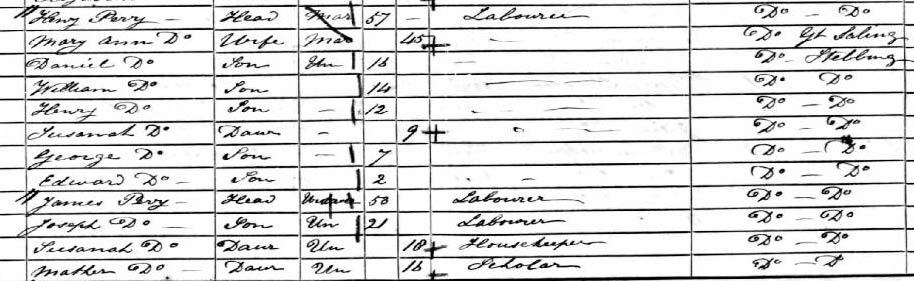 Henry Perry Head Mar 57 Labourer Do Do
Mary Ann Do Wife Mar 45 Do Gt Saling
Daniel Do Son Un 16 Do Stebbing
William Do Son 14 Do Do
Henry Do Son 12 Do Do
Susanah Do Daur 9 Do Do
George Do Son 7 Do Do
Edward Do Son 2 Do Do
James Perry Head 50 Labourer Do Do
Joseph Do Son Un 21 Labourer Do Do
Susanah Do Daur Un 18 Housekeeper Do Do
Do Daur Un 16 Scholar Do D